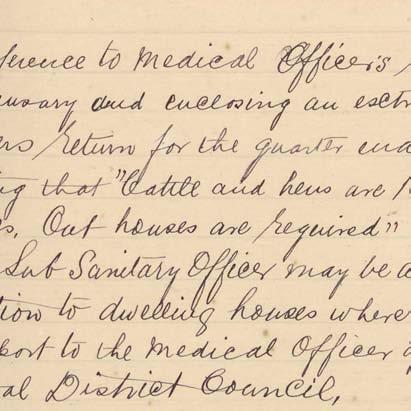 ference to Medical Officer's
ensary and enclosing an ext
ers return for the quarter end
ng that "Cattle and hens are
s. Out houses are required"
Sub Sanitary Officer may be
tion to dwelling houses where
port to the Medical Officer
al District Council,